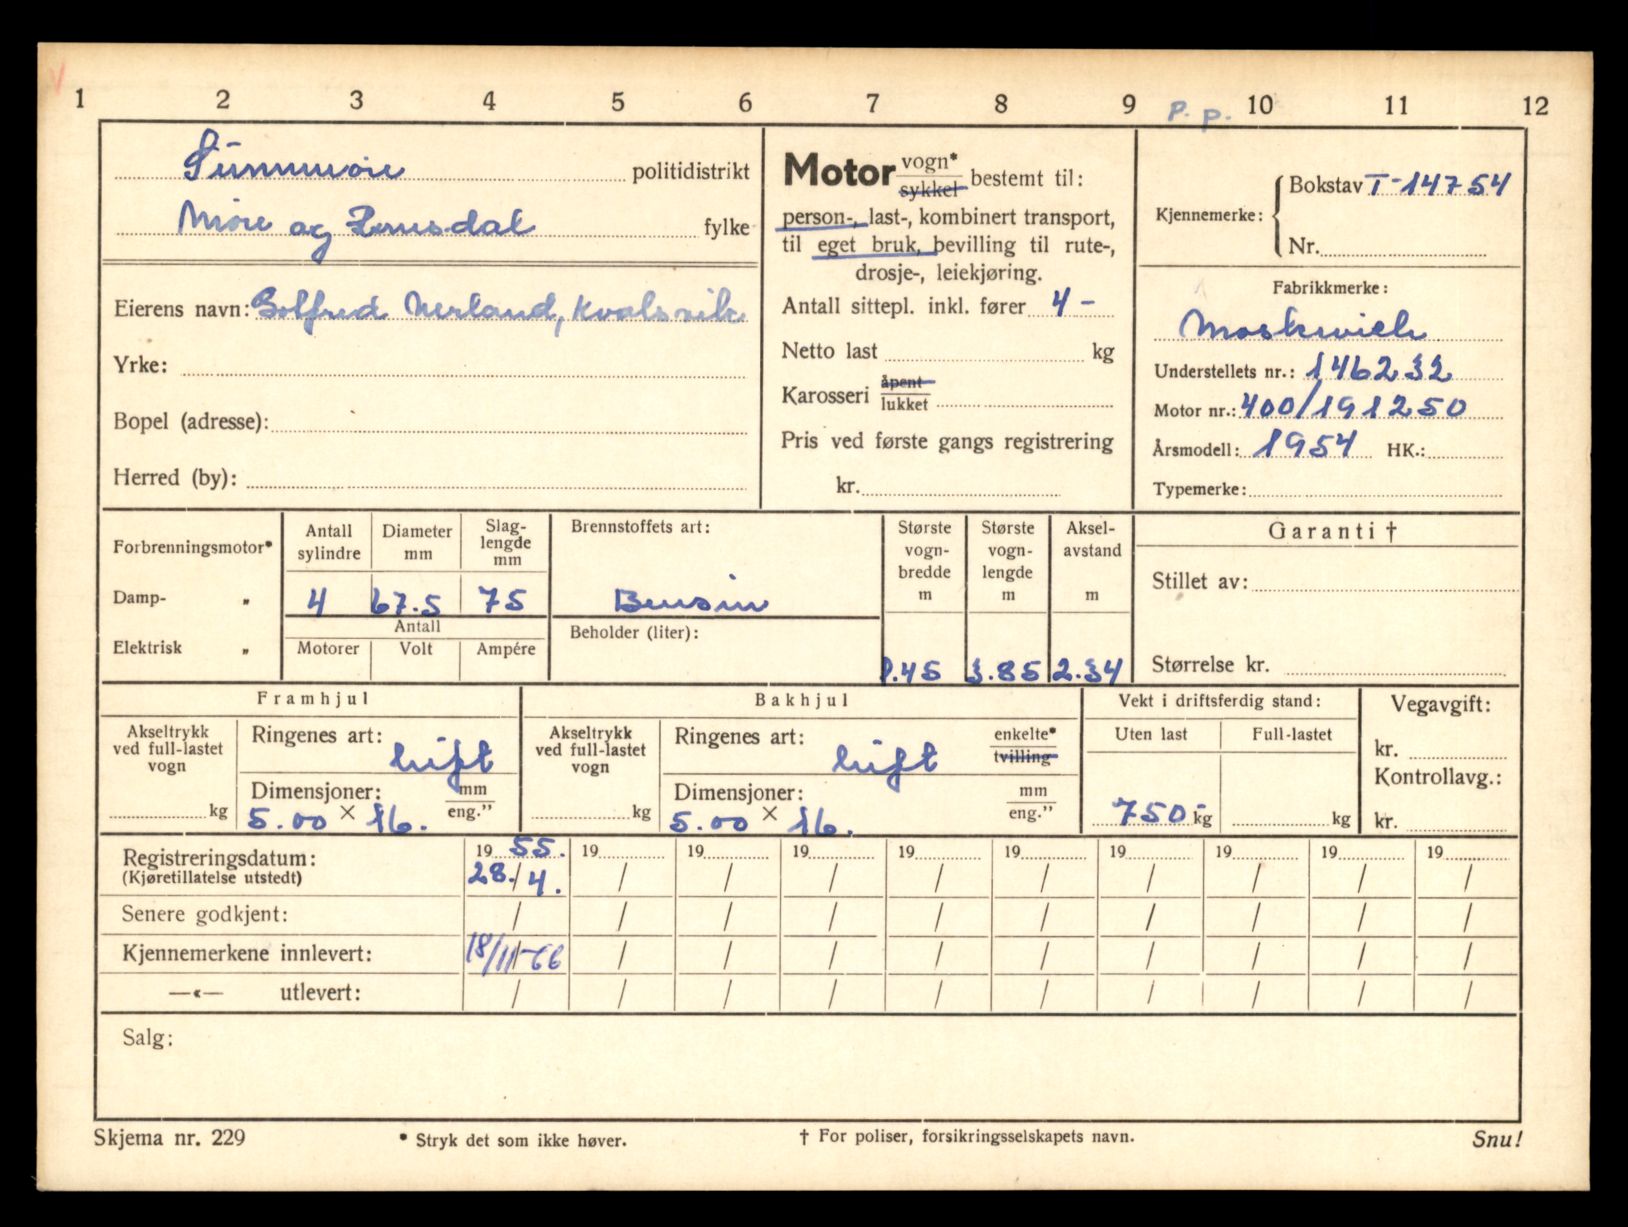 1 2 3 4 5 6 7 8 9 P. P. 10 11 12
Sunnmøre politidistrikt
Møre og Romsdal fylke
Eierens navn: Golfred Nerland, Kvalsvik
Yrke:
Bopel (adresse):
Herred (by):
Motor vogn* sykkel bestemt til:
person-, last-, kombinert transport,
til eget bruk, bevilling til rute-,
drosje-, leiekjøring.
Antall sittepl. inkl. fører 4 -
Netto last kg
Karosseri åpent lukket
Pris ved første gangs registrering
kr.
Kjennemerke: Bokstav T-14754
Nr.
Fabrikkmerke:
Moskvich
Understellets nr.: 146232
Motor nr.: 400/191250
Årsmodell: 1954 HK.:
Typemerke:
Forbrenningsmotor*
Damp- „
Elektrisk „
Antall sylindre Diameter mm Slag-lengde mm
4 67.5 75
Antall
Motorer Volt Ampére
Brennstoffets art:
Bensin
Beholder (liter):
Største vogn-bredde m Største vogn-lengde m Aksel-avstand m
1.45 3.85 2.34
Garanti †
Stillet av:
Størrelse kr.
Framhjul
Akseltrykk ved full-lastet vogn
kg
Ringenes art: luft
Dimensjoner: mm eng."
5.00 × 16.
Bakhjul
Akseltrykk ved full-lastet vogn
kg
Ringenes art: luft enkelte* tvilling
Dimensjoner: mm eng."
5.00 × 16.
Vekt i driftsferdig stand:
Uten last Full-lastet
750.- kg kg
Vegavgift:
kr.
Kontrollavg.:
kr.
Registreringsdatum: 19 55. 19 19 19 19 19 19 19 19 19
(Kjøretillatelse utstedt) 28./4. / / / / / / / / /
Senere godkjent: / / / / / / / / / /
Kjennemerkene innlevert: 18/11-66 / / / / / / / / /
—«— utlevert: / / / / / / / / / /
Salg:
Skjema nr. 229 * Stryk det som ikke høver. † For poliser, forsikringsselskapets navn. Snu!